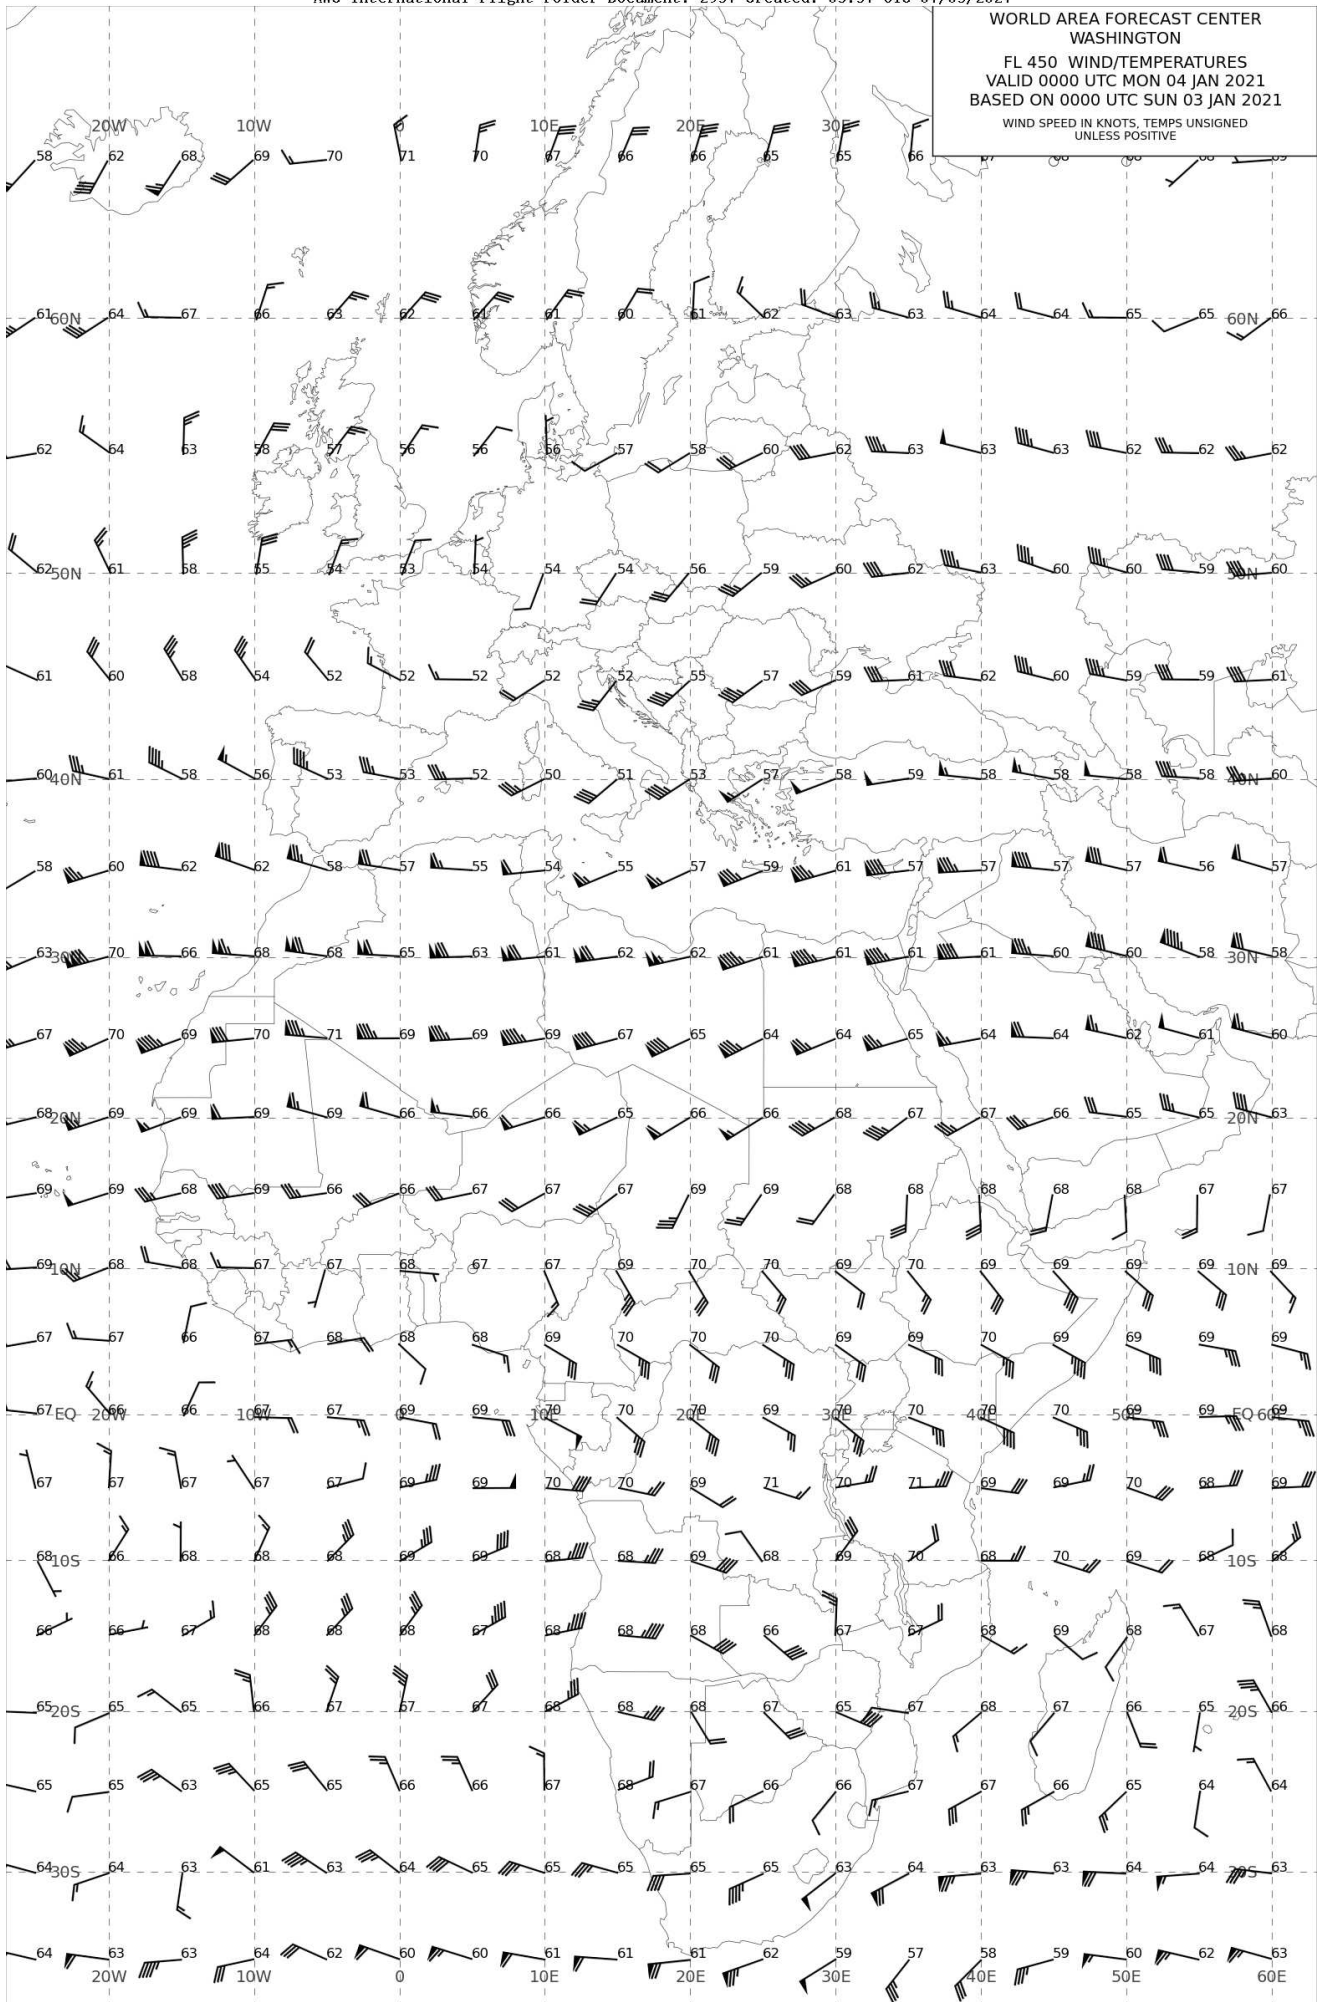 WORLD AREA FORECAST CENTER
WASHINGTON
FL 450 WIND/TEMPERATURES
VALID 0000 UTC MON 04 JAN 2021
BASED ON 0000 UTC SUN 03 JAN 2021
WIND SPEED IN KNOTS, TEMPS UNSIGNED
UNLESS POSITIVE
20W 10W 0 10E 20E 30E
58 62 68 69 70 71 70 67 66 66 65 65 66 68 69
61 60N 64 67 66 63 62 61 61 60 61 62 63 63 64 64 65 65 60N 66
62 64 63 58 57 56 56 56 57 58 60 62 63 63 63 62 62 62
62 50N 61 58 55 54 53 54 54 54 56 59 60 62 63 60 60 59 50N 60
61 60 58 54 52 52 52 52 52 55 57 59 61 62 60 59 59 61
60 40N 61 58 56 53 53 52 50 51 53 57 58 59 58 58 58 58 40N 60
58 60 62 62 58 57 55 54 55 57 59 61 57 57 57 57 56 57
63 30N 70 66 68 68 65 63 61 62 62 61 61 61 61 60 60 58 30N 58
67 70 69 70 71 69 69 69 67 65 64 64 65 64 64 62 61 60
68 20N 69 69 69 69 66 66 66 65 66 66 68 67 67 66 65 65 20N 63
69 69 68 69 66 66 67 67 67 69 69 68 68 68 68 68 67 67
69 10N 68 68 67 67 68 67 70 69 70 70 69 70 70 69 69 69 10N 69
67 67 66 67 68 68 68 69 70 70 70 69 69 70 69 69 69 69
67 EQ 20W 66 66 10W 67 67 0 69 69 10E 70 70 20E 70 69 30E 70 70 40E 70 70 50E 69 69 EQ 60E 69
67 67 67 67 67 69 69 70 70 69 71 70 71 69 69 70 68 69
68 10S 66 68 68 68 69 69 68 68 69 68 69 70 68 70 69 68 10S 68
66 66 67 68 68 68 67 68 68 68 66 67 67 68 69 68 67 68
65 20S 65 65 66 67 67 67 68 68 68 67 65 67 68 67 66 65 20S 66
65 65 63 65 65 66 66 67 68 67 66 66 67 67 66 65 64 64
64 30S 64 63 61 63 64 65 65 65 65 65 63 64 63 63 64 64 30S 63
64 63 63 64 62 60 60 61 61 61 62 59 57 58 59 60 62 63
20W 10W 0 10E 20E 30E 40E 50E 60E